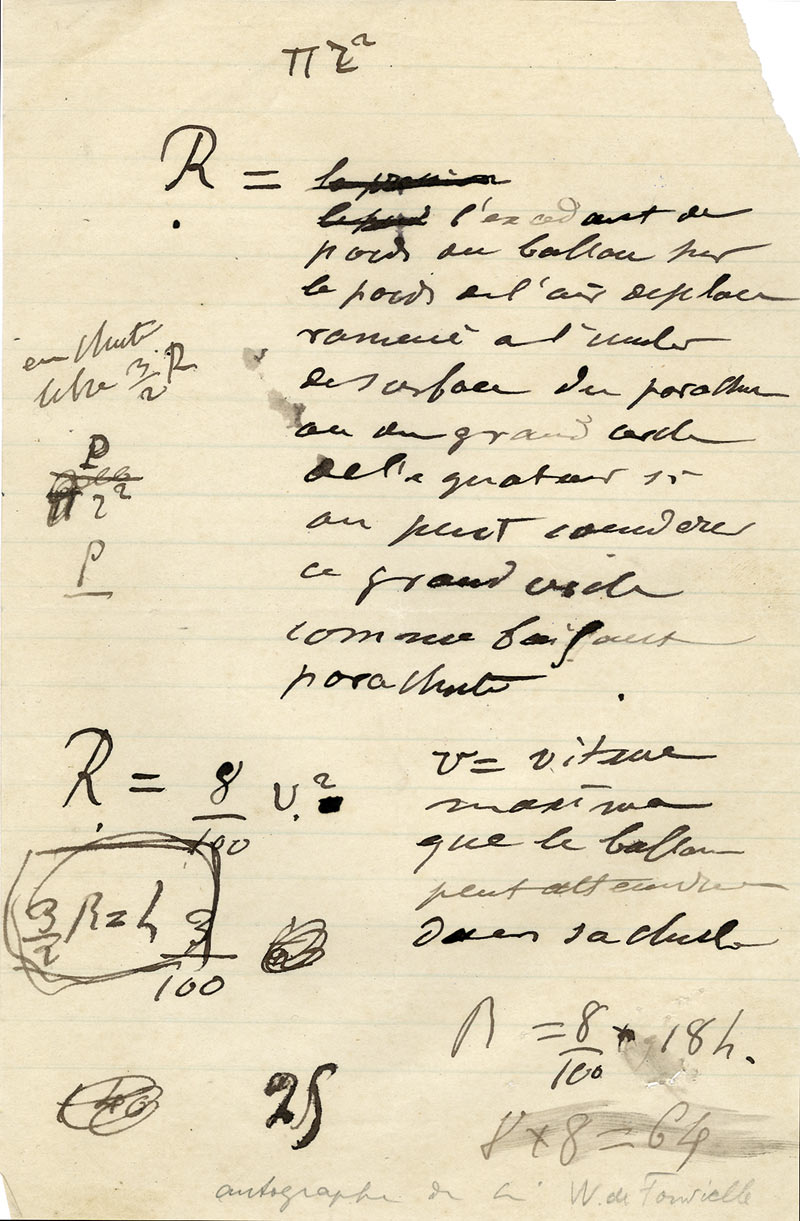 π r²
R = le pression
le poids l'excedant de
poids du ballon sur
le poids de l'air deplacé
ramené a l'unité
de surface du parachute
ou du grand cercle
de l'equateur si
on peut considerer
ce grand cercle
comme faisant
parachute.
en chute
libre 3/2 R
P
π r²
P
R = 8/100 v²
v = vitesse
maxima
que le ballon
peut atteindre
dans sa chute
3/2 R = h 3/100
R = 8/100 × 18 h.
25
8 x 8 = 64
autographe de W. de Fonvielle